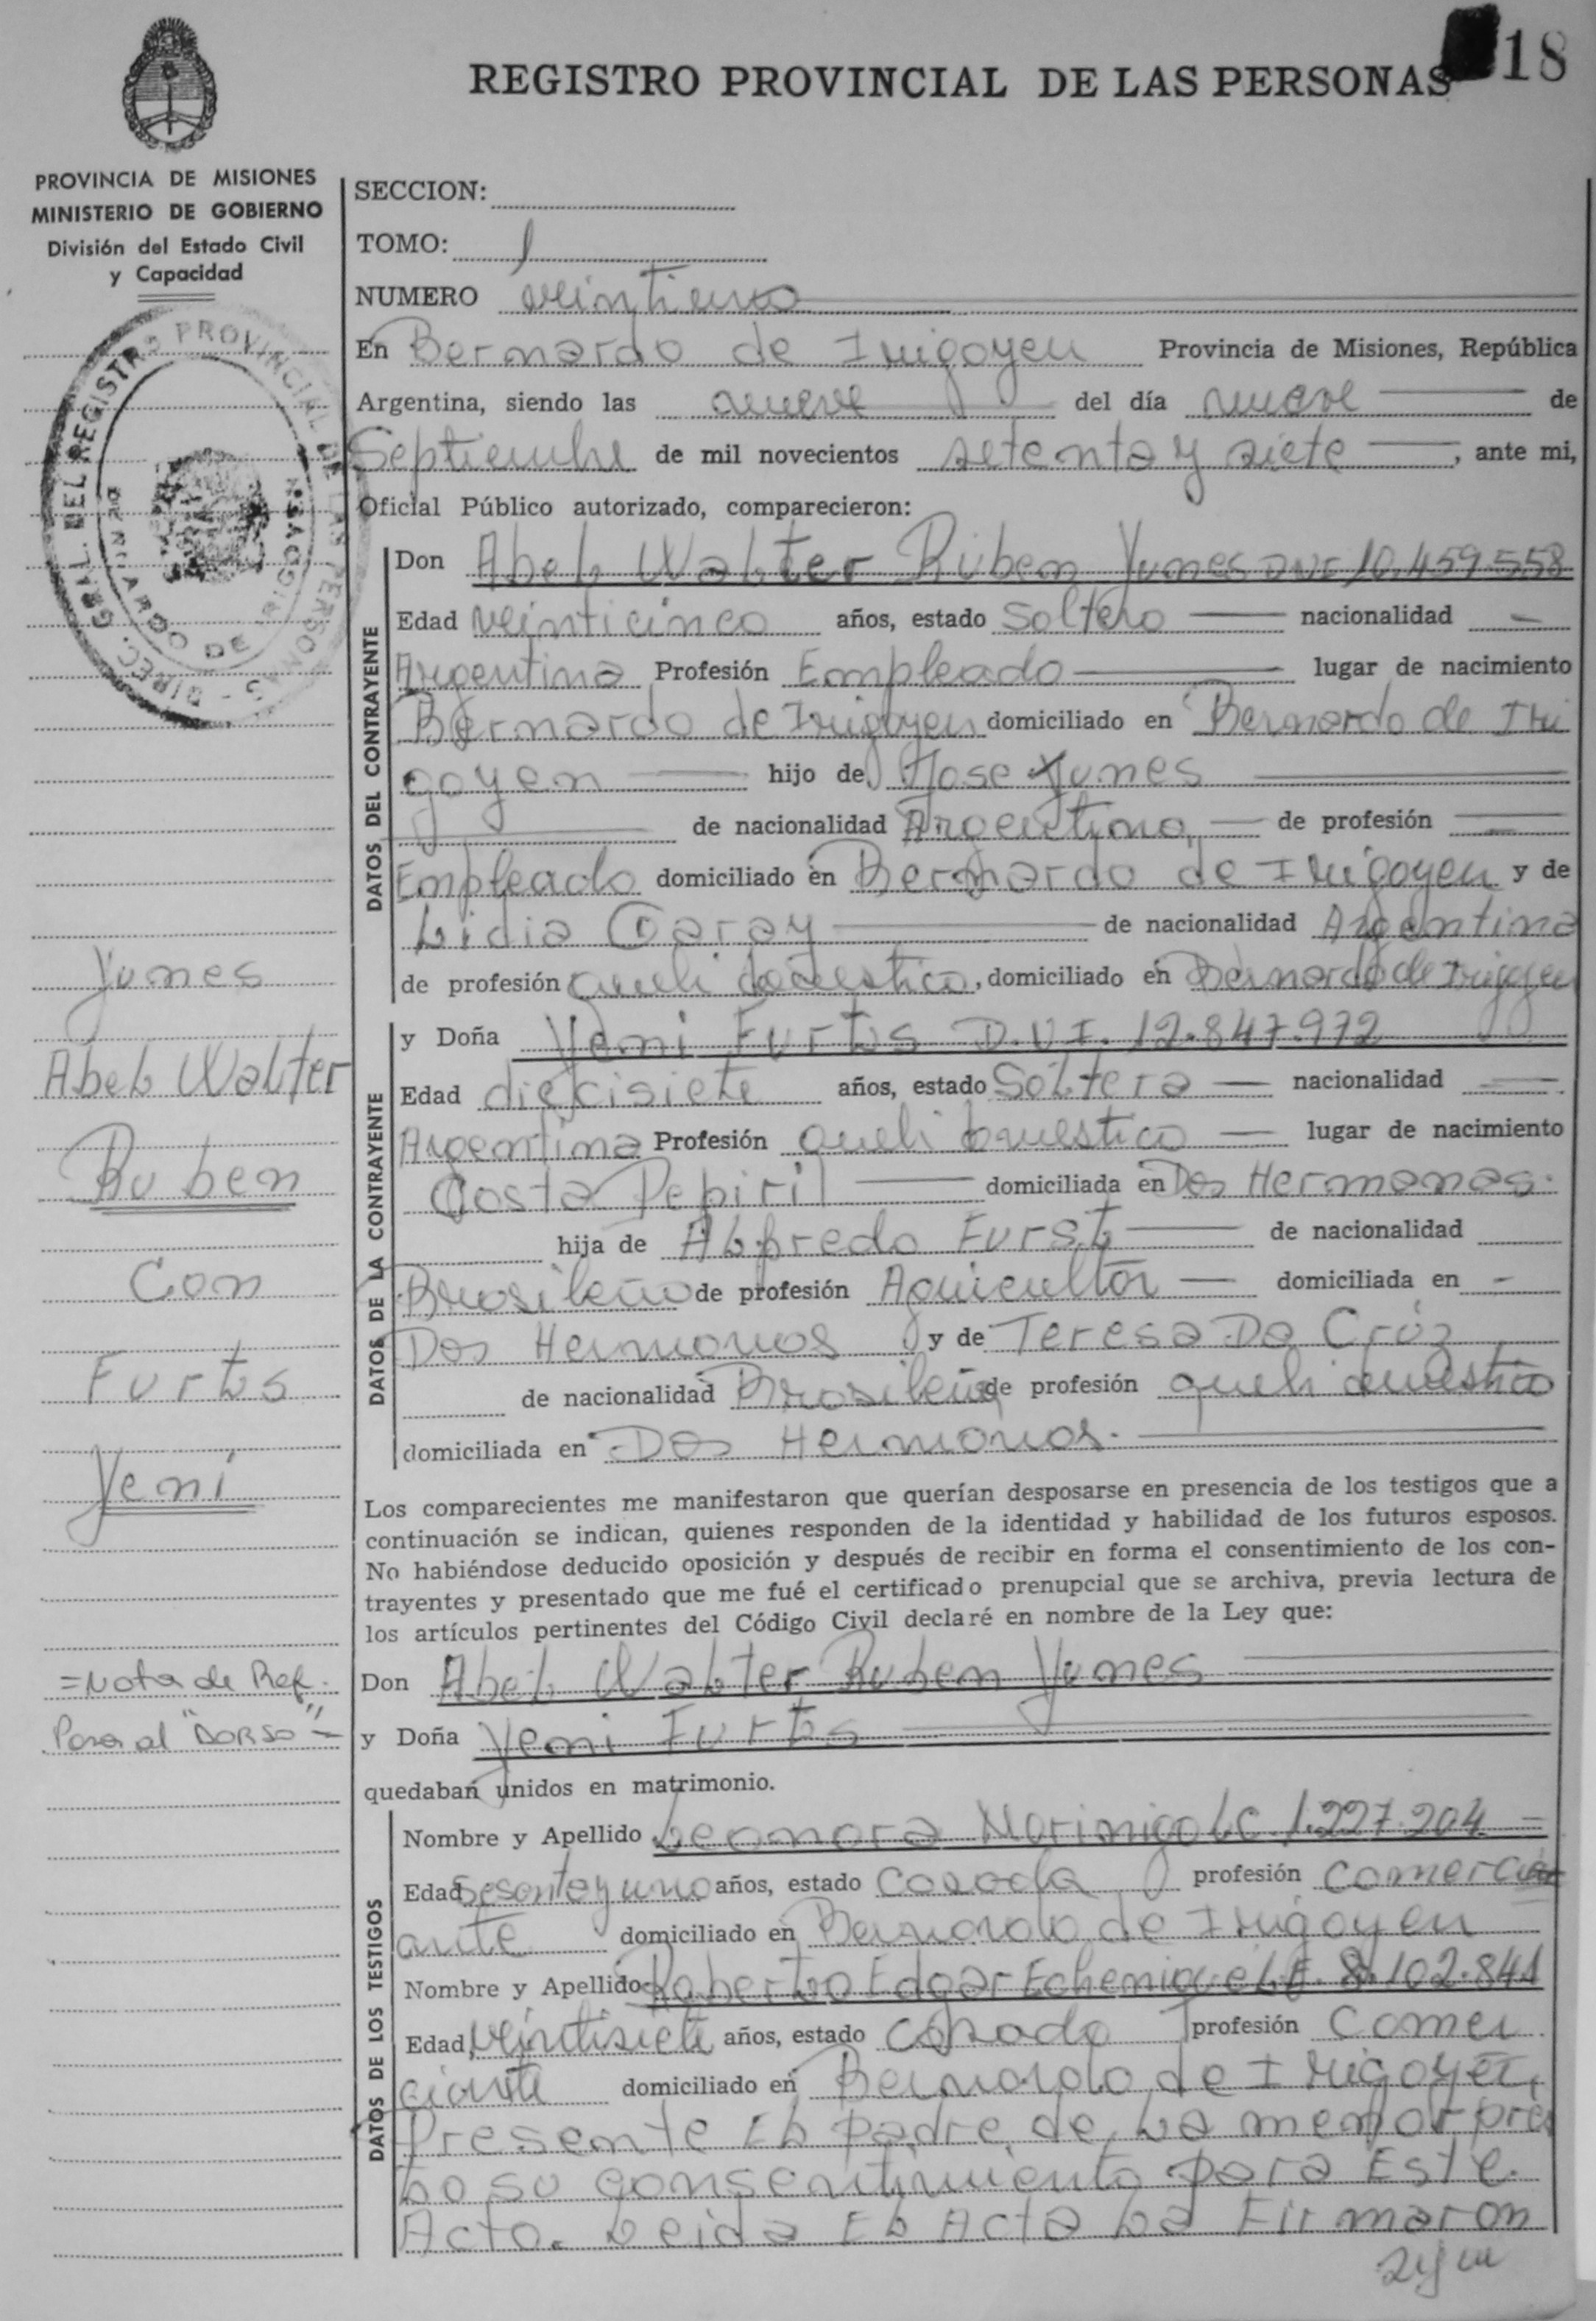 18
REGISTRO PROVINCIAL DE LAS PERSONAS
PROVINCIA DE MISIONES
MINISTERIO DE GOBIERNO
División del Estado Civil
y Capacidad
DIREC. GRAL. DEL REGISTRO PROVINCIAL DE LAS PERSONAS
BERNARDO DE IRIGOYEN
SECCION:
TOMO: 1
NUMERO veintiuno
En Bernardo de Irigoyen Provincia de Misiones, República
Argentina, siendo las nueve del día nueve de
Septiembre de mil novecientos setenta y siete, ante mi,
Oficial Público autorizado, comparecieron:
DATOS DEL CONTRAYENTE
Don Abel Walter Ruben Yunes DNI 10.459.558
Edad veinticinco años, estado Soltero nacionalidad
Argentina Profesión Empleado lugar de nacimiento
Bernardo de Irigoyen domiciliado en Bernardo de Iri
goyen hijo de Jose Yunes
de nacionalidad Argentina, de profesión
Empleado domiciliado en Bernardo de Irigoyen y de
Lidia Garay de nacionalidad Argentina
de profesión queh domestico, domiciliado en Bernardo de Irigoyen
DATOS DE LA CONTRAYENTE
y Doña Yeni Furtos D.N.I. 12.847.972
Edad diecisiete años, estado Soltera nacionalidad
Argentina Profesión queh domestico lugar de nacimiento
Costa Pepiril domiciliada en Dos Hermanas.
hija de Alfredo Furst de nacionalidad
Brasileño de profesión Agricultor domiciliada en -
Dos Hermanas y de Teresa Da Cruz
de nacionalidad Brasileña de profesión queh domestico
domiciliada en Dos Hermanas.
Los comparecientes me manifestaron que querían desposarse en presencia de los testigos que a
continuación se indican, quienes responden de la identidad y habilidad de los futuros esposos.
No habiéndose deducido oposición y después de recibir en forma el consentimiento de los con-
trayentes y presentado que me fué el certificado prenupcial que se archiva, previa lectura de
los artículos pertinentes del Código Civil declaré en nombre de la Ley que:
Don Abel Walter Ruben Yunes
y Doña Yeni Furtos
quedaban unidos en matrimonio.
DATOS DE LOS TESTIGOS
Nombre y Apellido Leonora Marinigo LC. 1.227.204
Edad Sesentayuno años, estado Casada profesión Comerci
ante domiciliado en Bernardo de Irigoyen
Nombre y Apellido Roberto Edgar Echenique L.E. 8.102.841
Edad veintisiete años, estado Casado profesión Comer
ciante domiciliado en Bernardo de Irigoyen,
Presente El padre de La menor pres
to su consentimiento para Este
Acto. Leida El Acta La Firmaron
Yunes
Abel Walter
Ruben
Con
Furtos
Yeni
=Nota de Ref.
Pasa al "DORSO"=